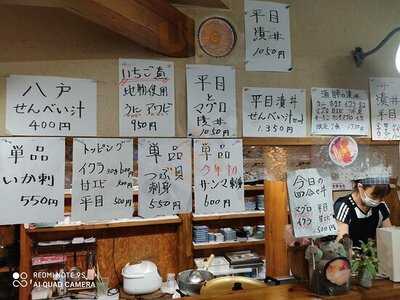 平目
漬丼
1050円
八戸
せんべい汁
400円
いちご煮
地物使用
うに アワビ
950円
平目
と
マグロ
漬丼
1050円
平目漬丼
せんべい汁セット
1.350円
漁師の漬丼
漬丼
平目
単品
いか刺
550円
トッピング
イクラ
甘エビ
平目 500円
単品
つぶ貝
刺身
550円
単品
サンマ刺身
600円
今日の
四合せ丼
マグロ
イクラ
平目
REDMI NOTE 9S
AI QUAD CAMERA